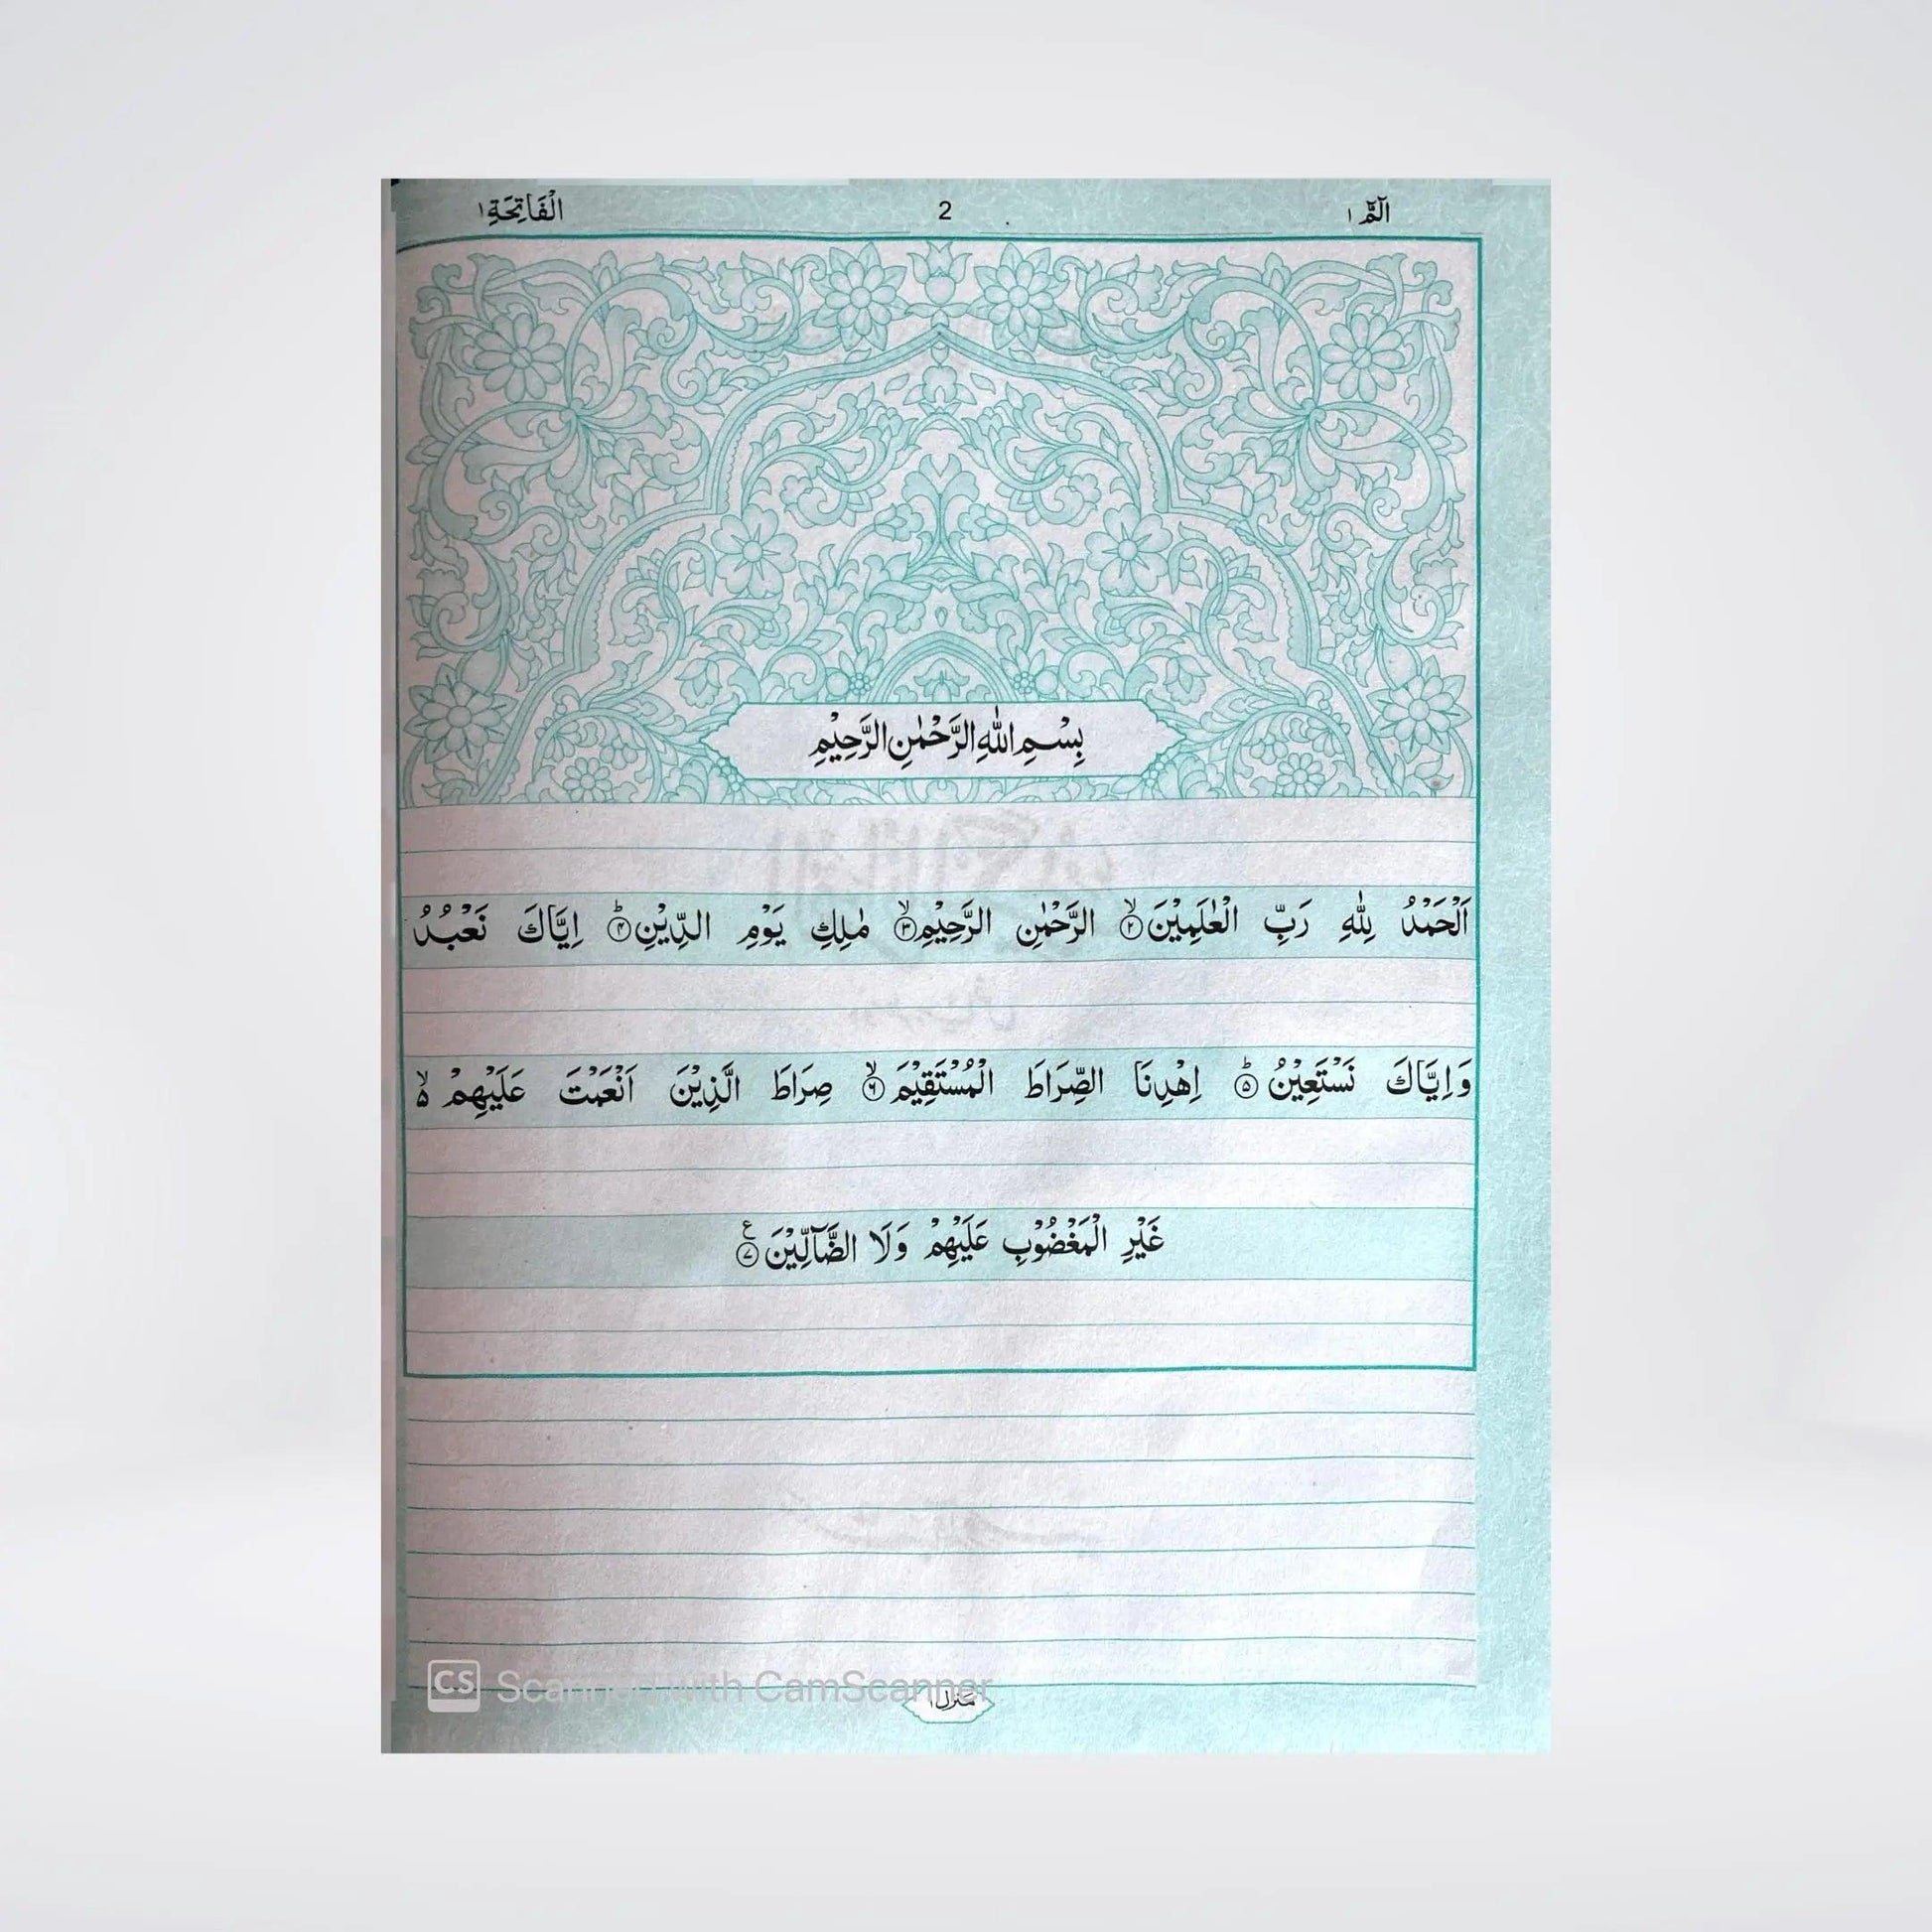 الٓمّٓ ١ 2 اَلْفَاتِحَةِ ١
بِسْمِ اللّٰهِ الرَّحْمٰنِ الرَّحِيْمِ
اَلْحَمْدُ لِلّٰهِ رَبِّ الْعٰلَمِيْنَ ۙ﴿۲﴾ الرَّحْمٰنِ الرَّحِيْمِ ۙ﴿۳﴾ مٰلِكِ يَوْمِ الدِّيْنِ ؕ﴿۴﴾ اِيَّاكَ نَعْبُدُ
وَاِيَّاكَ نَسْتَعِيْنُ ؕ﴿۵﴾ اِهْدِنَا الصِّرَاطَ الْمُسْتَقِيْمَ ۙ﴿۶﴾ صِرَاطَ الَّذِيْنَ اَنْعَمْتَ عَلَيْهِمْ ۙ۵
غَيْرِ الْمَغْضُوْبِ عَلَيْهِمْ وَلَا الضَّآلِّيْنَ ﴿۷﴾ ع
CS Scanned with CamScanner
مَنْزِل ١